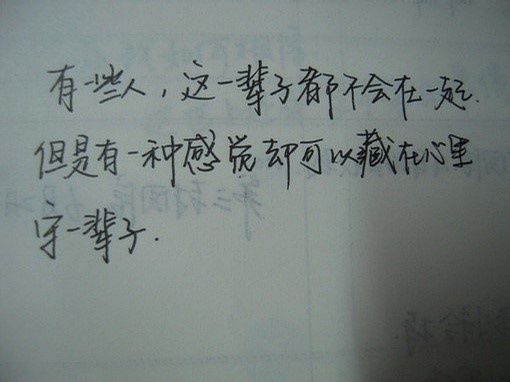 有一些人，这一辈子都不会在一起.
但是有一种感觉却可以藏在心里
守一辈子.